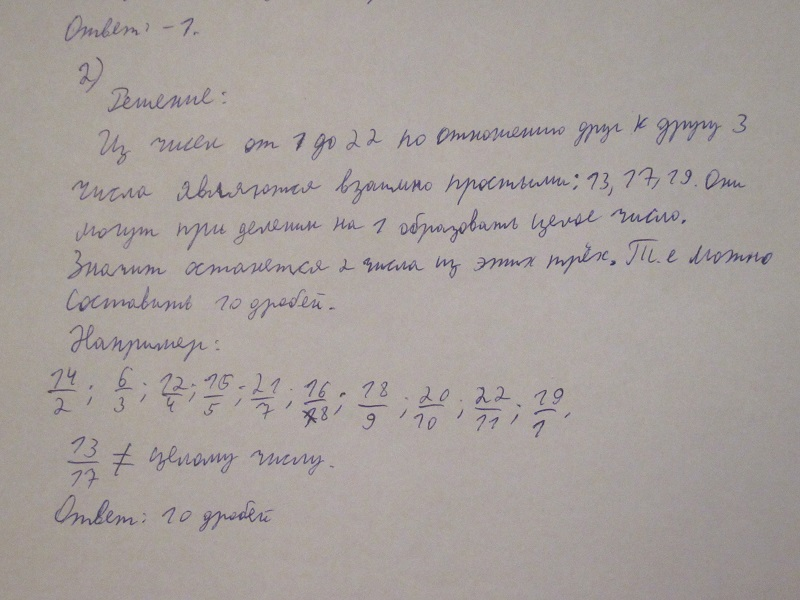 Ответ: -1.
2)
Решение:
Из чисел от 1 до 22 по отношению друг к другу 3
числа являются взаимно простыми: 13, 17, 19. Они
могут при делении на 1 образовать целое число.
Значит останется 2 числа из этих трёх. Т.е можно
составить 10 дробей.
Например:
14/2; 6/3; 12/4; 15/5; 21/7; 16/8; 18/9; 20/10; 22/11; 19/1,
13/17 ≠ целому числу.
Ответ: 10 дробей